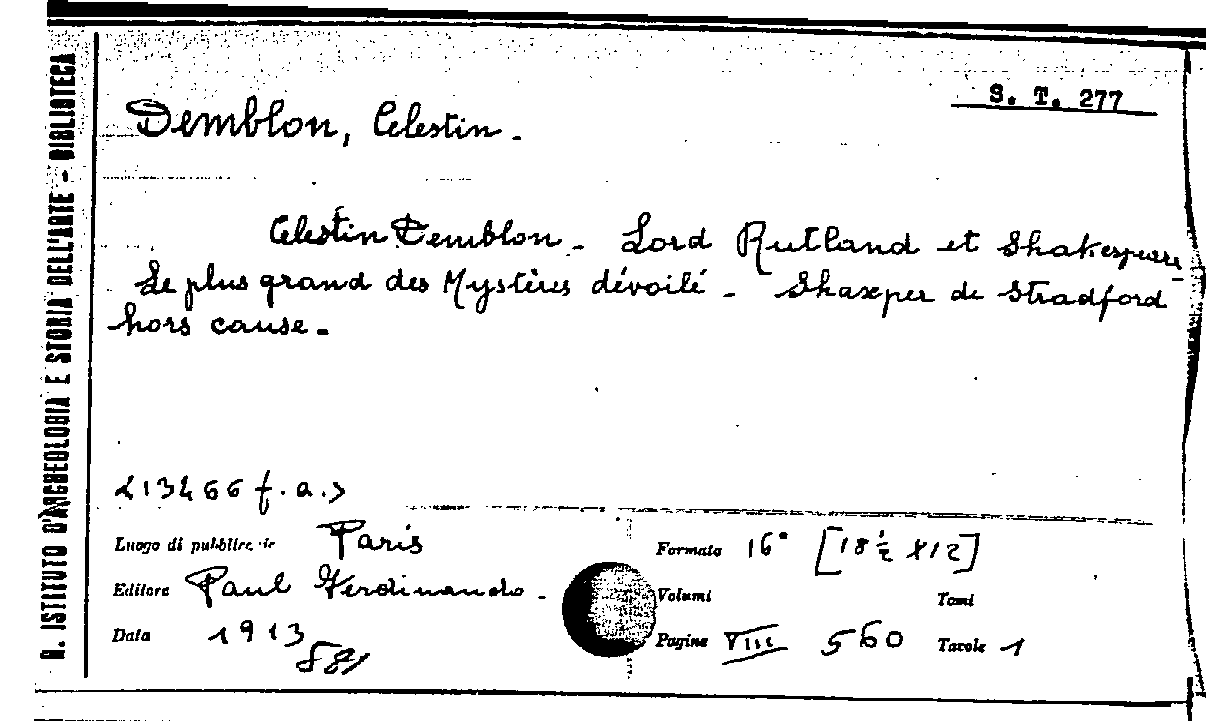 R. ISTITUTO D'ARCHEOLOGIA E STORIA DELL'ARTE - BIBLIOTECA
S. T. 277
Demblon, Celestin.
Celestin Demblon. Lord Rutland et Shakespeare
Le plus grand des Mystères dévoilé - Shaxper de Stradford
hors cause.
<13466 f.a.>
Luogo di pubblicazione Paris
Formato 16° [18 ½ X12]
Editore Paul Ferdinando.
Volumi Tomi
Data 1913
Pagine VIII 560 Tavole 1